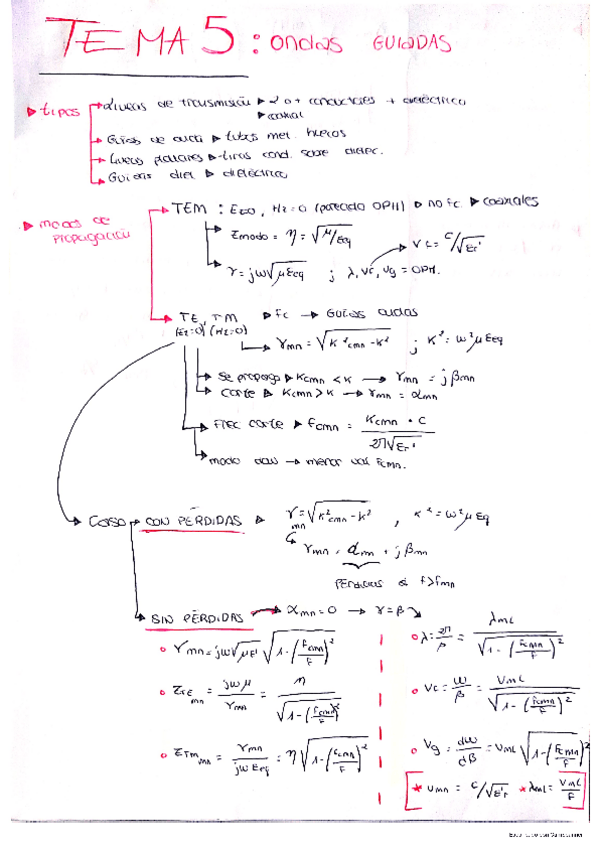 TEMA 5 : ondas GUIADAS
tipos
Líneas de transmisión ▸ 2 o + conductores + dieléctrico
▸ coaxial
Guías de onda ▸ tubos met. huecos
Líneas planares ▸ tiras cond. sobre dielec.
Guías diel ▸ dieléctrico
modos de propagación
TEM : Ez=0, Hz=0 (parecido OPH) ▸ no fc ▸ coaxiales
Zmodo = η = √μ/εeq
vc = c/√εr'
γ = jω√μεeq ; λ, vc, vg = OPH.
TE, TM ▸ fc → Guías ondas
(Ez=0) (Hz=0)
γmn = √K²cmn - K² ; K² = ω²μεeq
se propaga ▸ Kcmn < K → γmn = jβmn
corte ▸ Kcmn > K → γmn = αmn
frec corte ▸ fcmn = Kcmn · c / 2π√εr'
modo dom → menor val fcmn.
CON PÉRDIDAS ▸ γmn = √K²cmn - K² , K² = ω²μεq
γmn = αmn + jβmn
pérdidas si f>fmn
SIN PÉRDIDAS → αmn = 0 → γ = β
γmn = jω√με' √1-(fcmn/f)²
λ = 2π/β = λML / √1-(fcmn/f)²
ZTEmn = jωμ/γmn = η / √1-(fcmn/f)²
vc = ω/β = VML / √1-(fcmn/f)²
ZTMmn = γmn/jωεeq = η √1-(fcmn/f)²
Vg = dω/dβ = VML √1-(fcmn/f)²
* Vmn = c/√ε'r * λML = VML/f